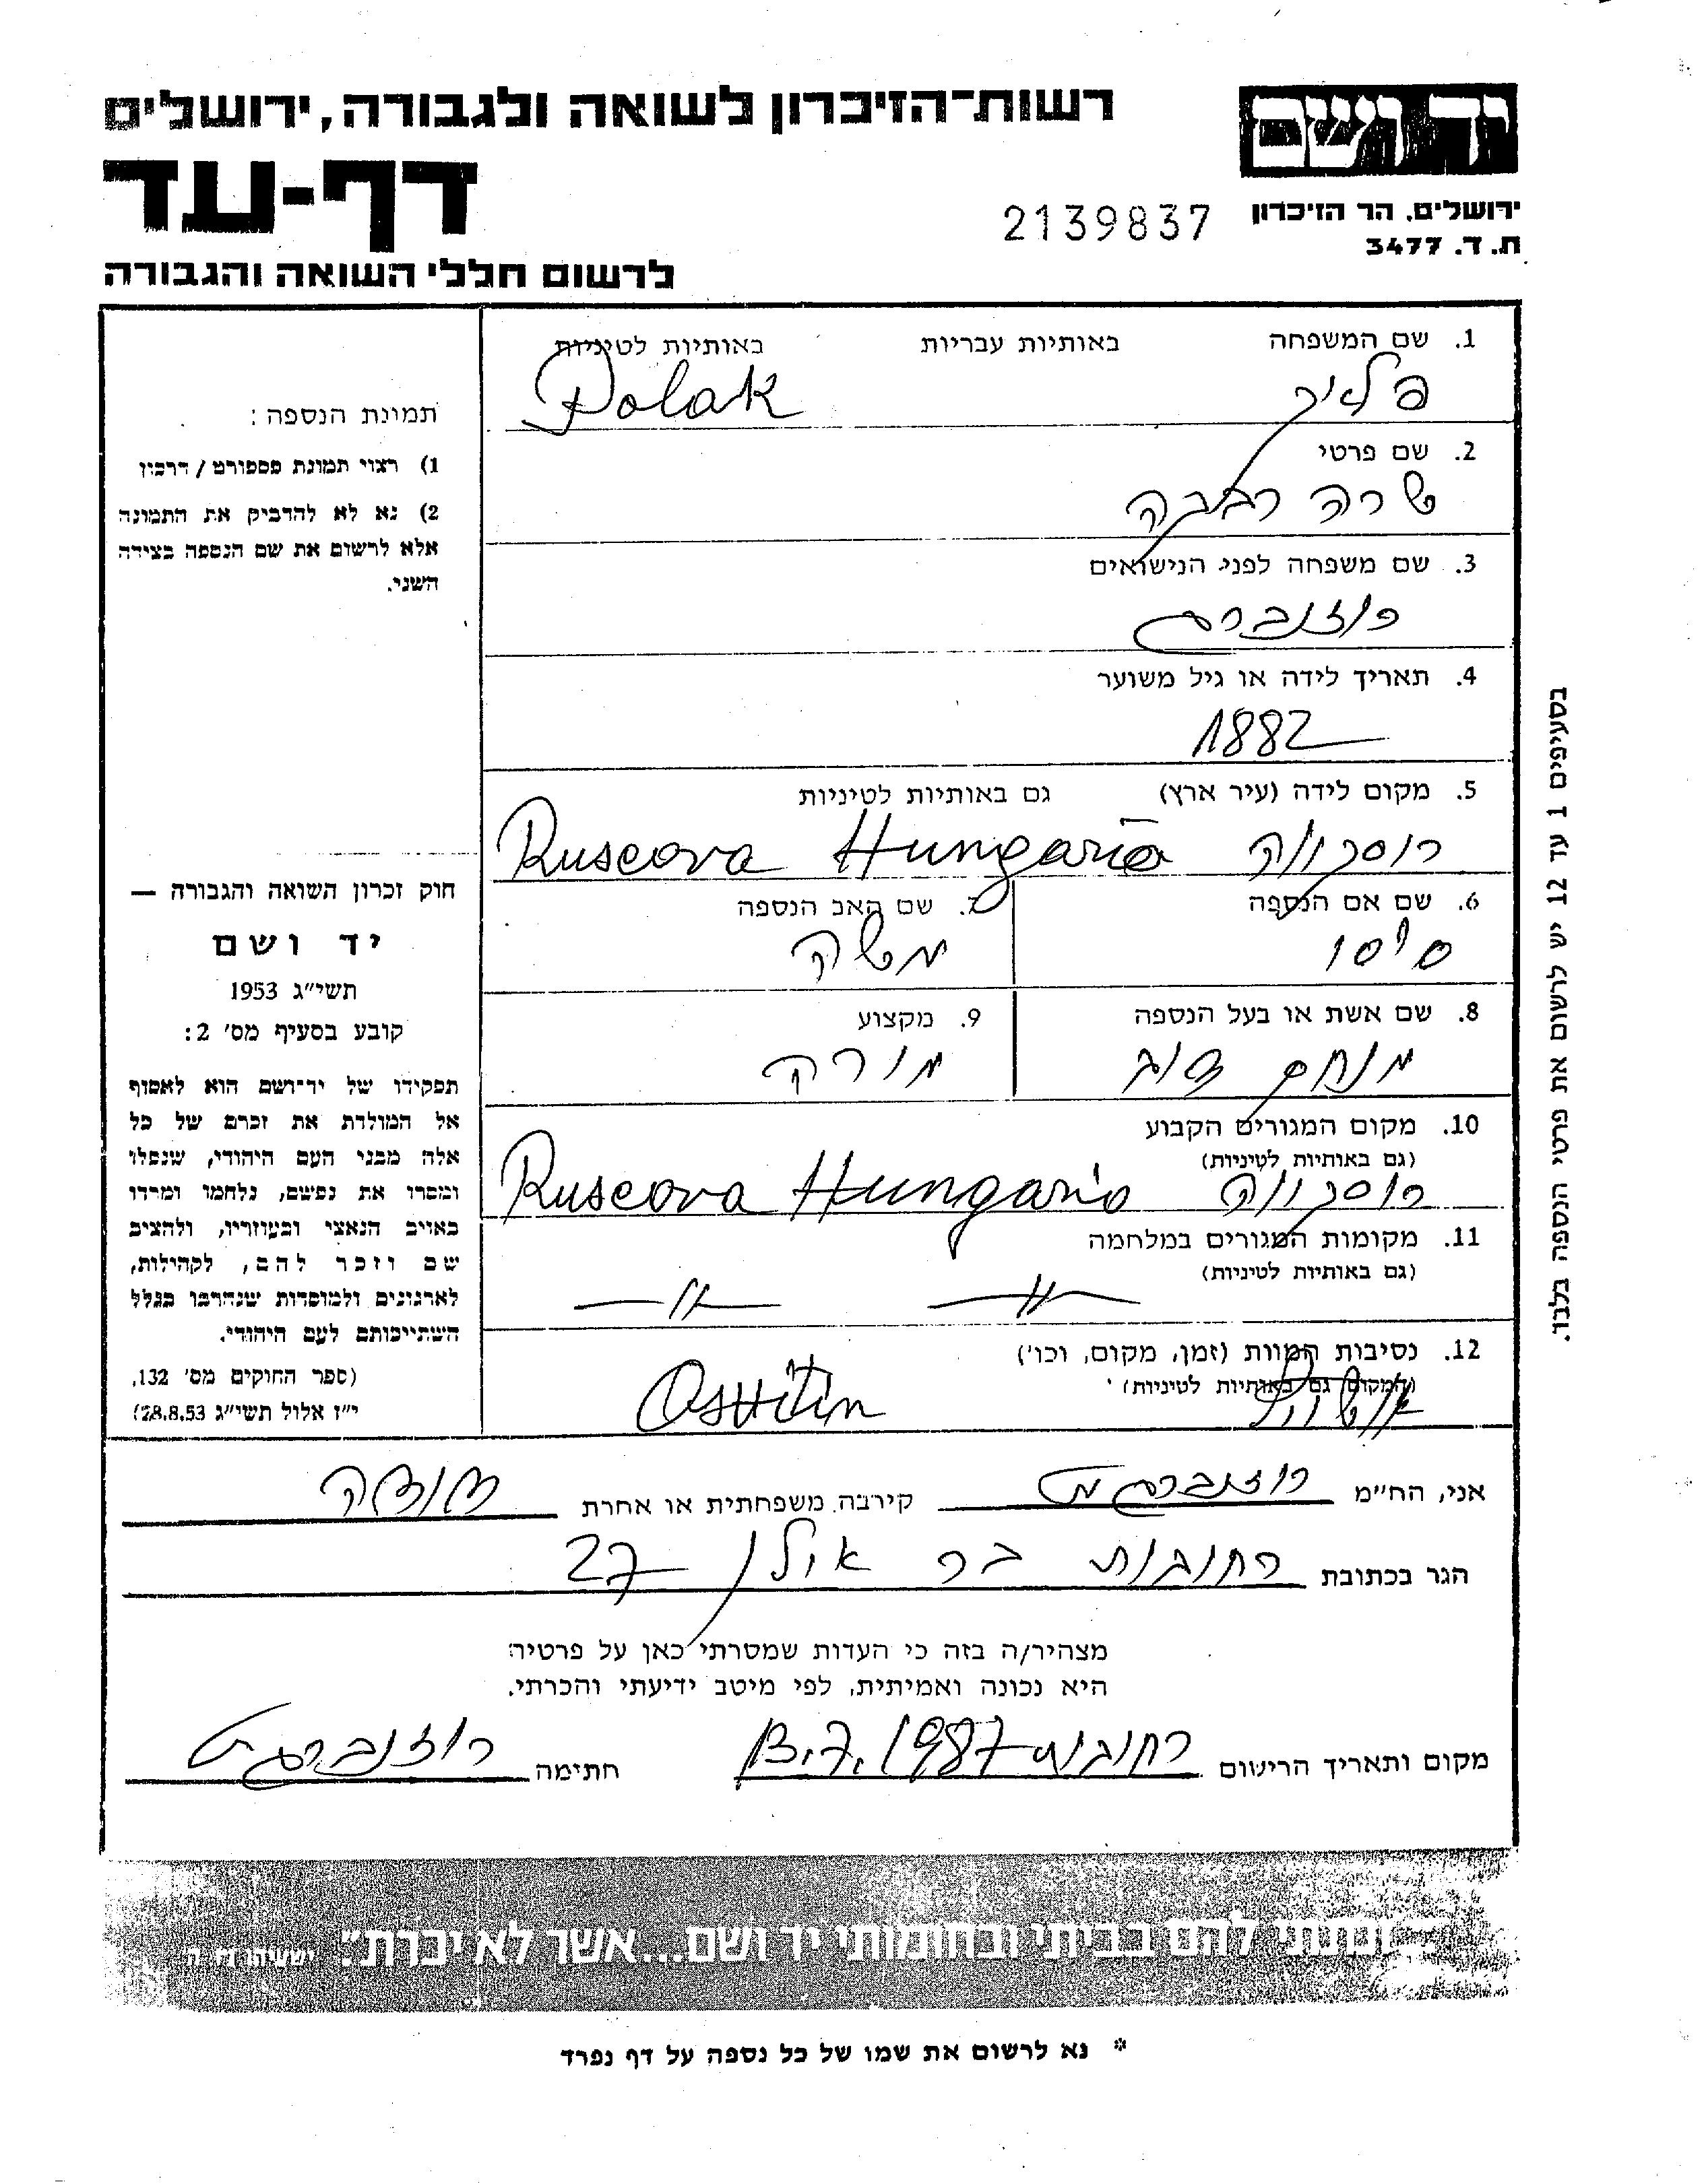 יד ושם
רשות-הזיכרון לשואה ולגבורה, ירושלים
דף-עד
ירושלים, הר הזיכרון
ת. ד. 3477
2139837
לרשום חללי השואה והגבורה
1. שם המשפחה באותיות עבריות באותיות לטיניות
Polak
2. שם פרטי
שרה רבקה
3. שם משפחה לפני הנישואים
רוזנברג
4. תאריך לידה או גיל משוער
1882
5. מקום לידה (עיר ארץ) גם באותיות לטיניות
רוסקווה Ruscova Hungaria
6. שם אם הנספה 7. שם האב הנספה
סיסו משה
8. שם אשת או בעל הנספה 9. מקצוע
מנחם מורה
10. מקום המגורים הקבוע
(גם באותיות לטיניות)
רוסקווה Ruscova Hungaria
11. מקומות המגורים במלחמה
(גם באותיות לטיניות)
—11— —11—
12. נסיבות המוות (זמן, מקום, וכו')
(המקום גם באותיות לטיניות)
תמונת הנספה:
1) רצוי תמונת פספורט / דרכון
2) נא לא להדביק את התמונה
אלא לרשום את שם הנספה בצידה
השני.
חוק זכרון השואה והגבורה —
יד ושם
תשי"ג 1953
קובע בסעיף מס' 2:
תפקידו של יד-ושם הוא לאסוף
אל המולדת את זכרם של כל
אלה מבני העם היהודי, שנפלו
ומסרו את נפשם, נלחמו ומרדו
באויב הנאצי ובעוזריו, ולהציב
שם וזכר להם, לקהילות,
לארגונים ולמוסדות שנחרבו בגלל
השתייכותם לעם היהודי.
(ספר החוקים מס' 132,
י"ז אלול תשי"ג 28.8.53)
בסעיפים 1 עד 12 יש לרשום את פרטי הנספה בלבד.
אני, הח"מ רוזנברג קירבה משפחתית או אחרת
הגר בכתובת רחובות בר אילן 27
מצהיר/ה בזה כי העדות שמסרתי כאן על פרטיה
היא נכונה ואמיתית, לפי מיטב ידיעתי והכרתי.
מקום ותאריך הרישום רחובות 13.7.1987 חתימה רוזנברג
"ונתתי להם בביתי ובחומותי יד ושם...אשר לא יכרת". ישעיהו נו ה
* נא לרשום את שמו של כל נספה על דף נפרד